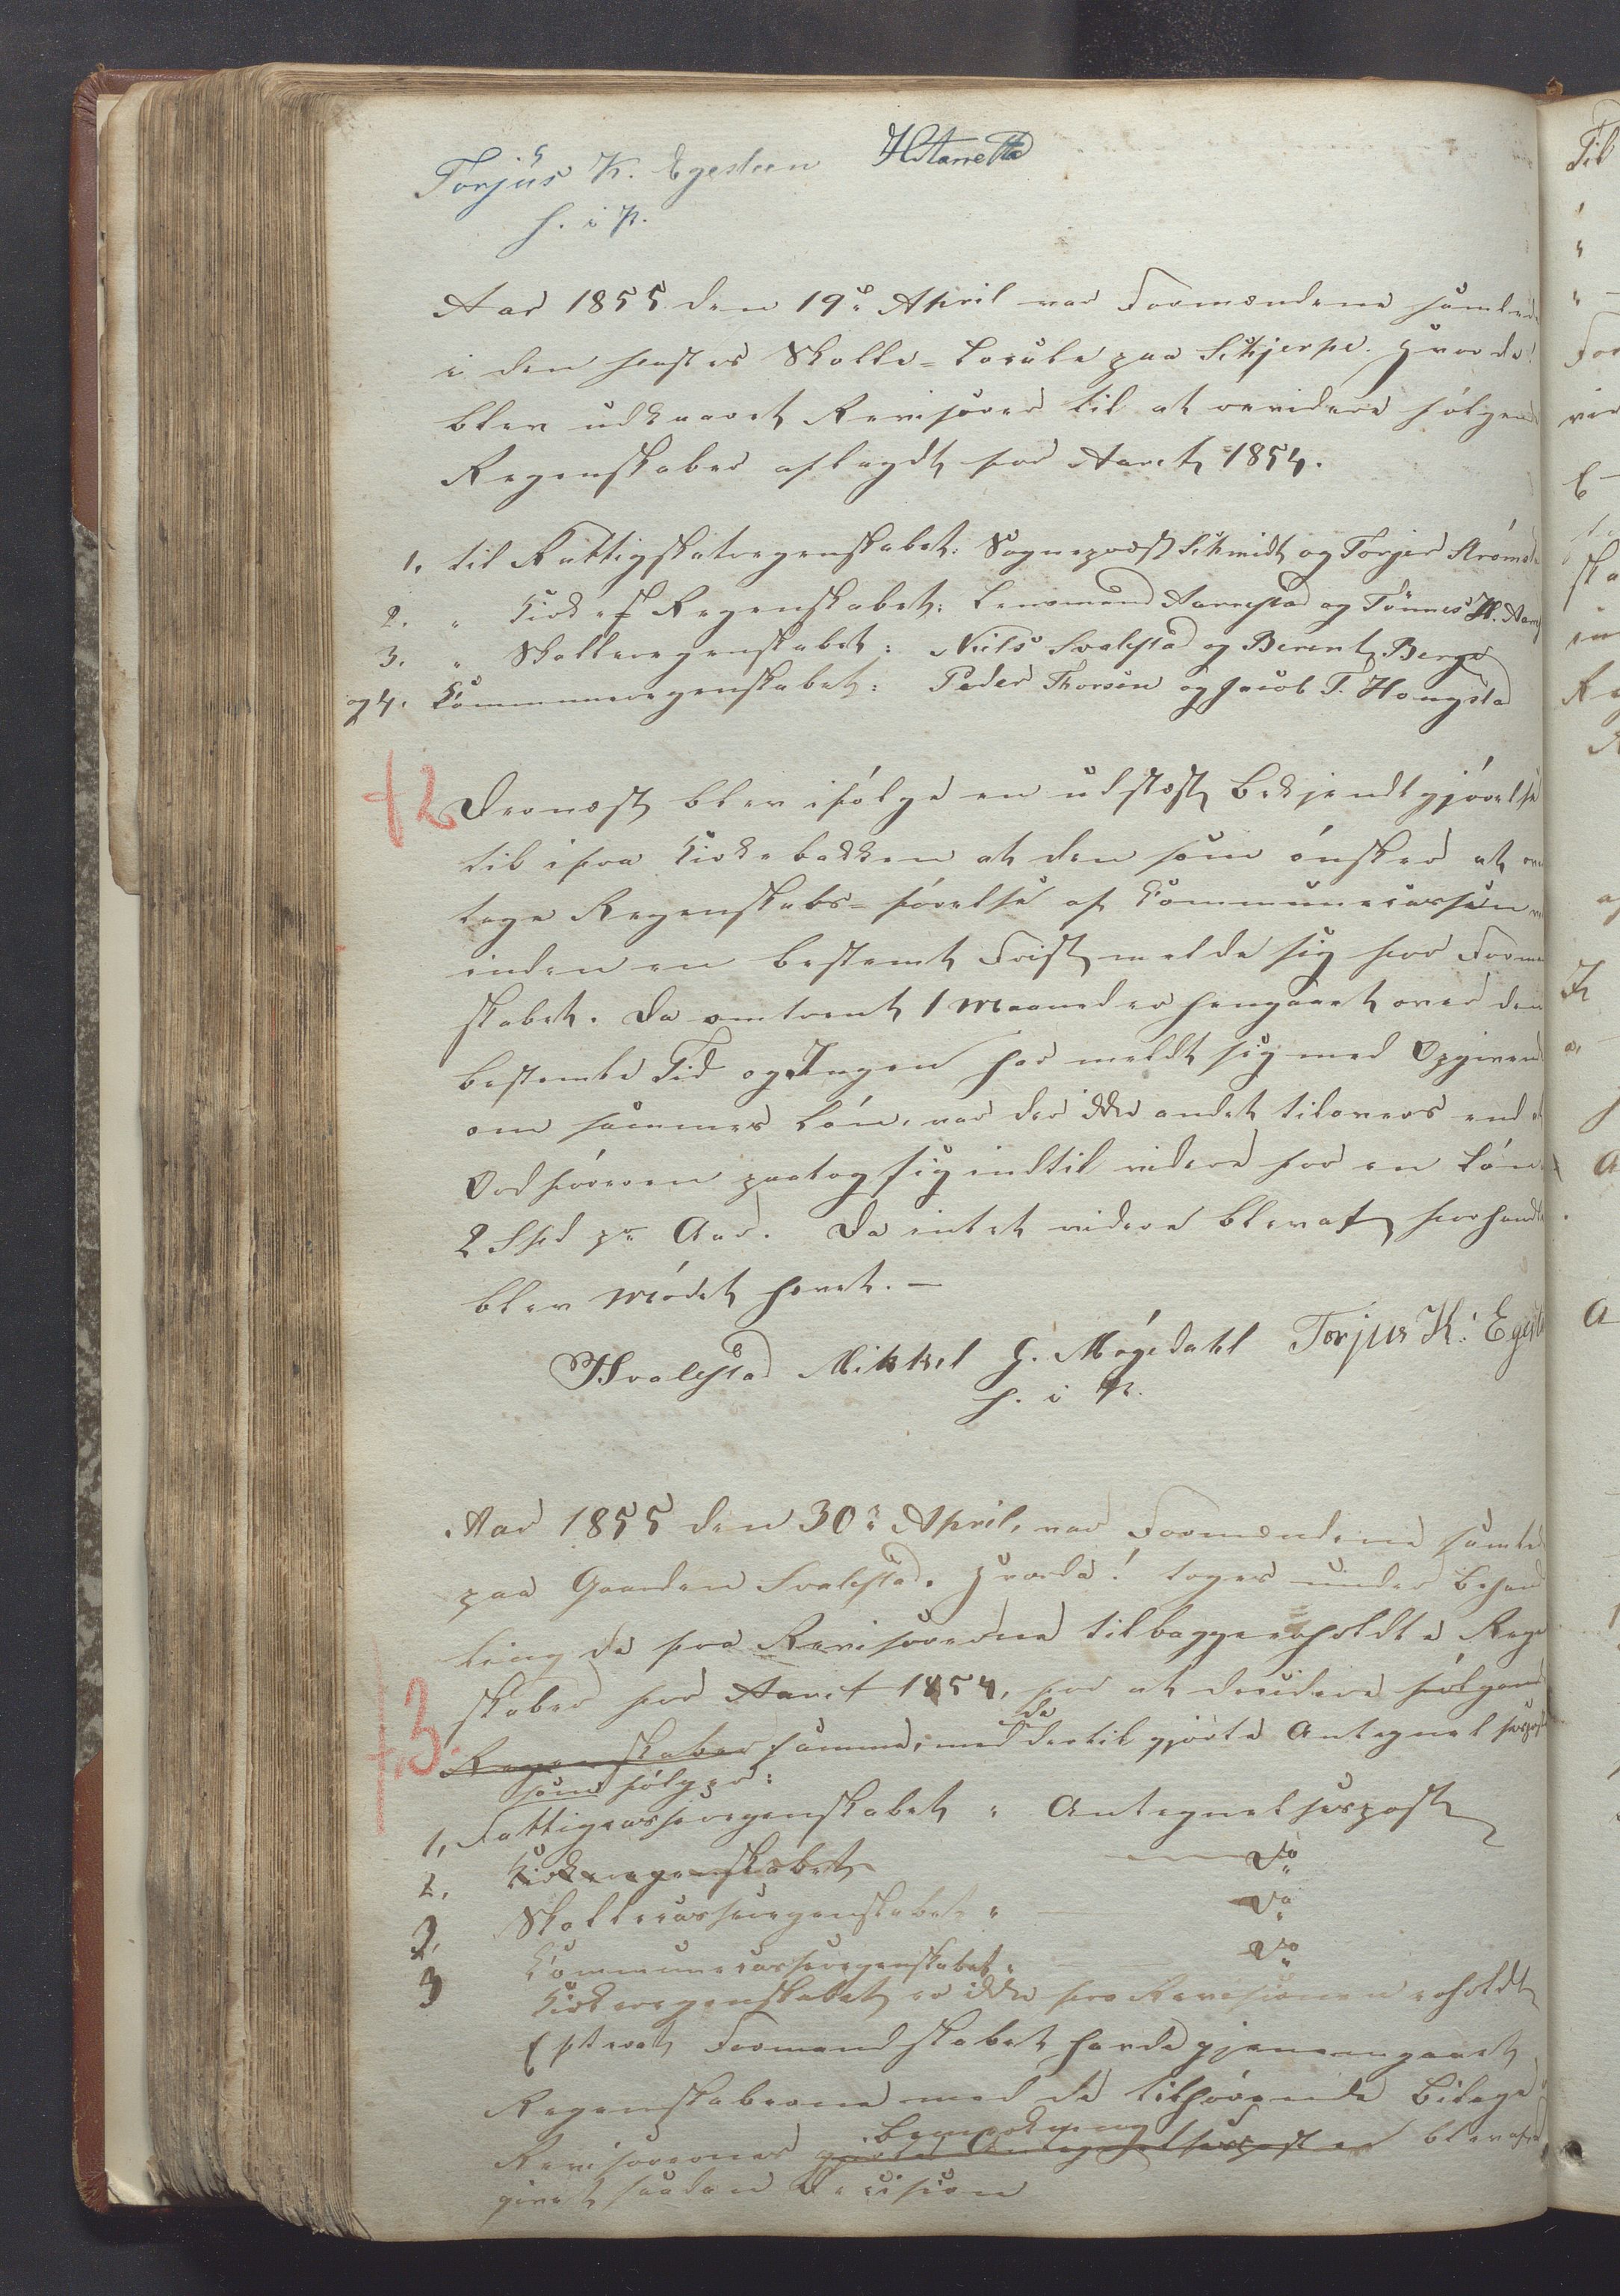 Torjus K. Egesteen HTanetta
h. i P.
Aar 1855 den 19de April var Formændene samled
i den faste Skolle-Locale paa Skjerpe. Hvor da!
blev udkaaret Revisorer til at revidere følgend
Regenskaber aflagdt for Aaret 1854.
1. til Fattigskatregenskabet: Sogneprest Schmidt og Torjer Strømst
2. " Kirke Regenskabet: Lensmand Aarrestad og Tønnes H. Aarr
3. " Skolleregenskabet: Niels Svalestad og Berent Berge
og 4. Kommuneregenskabet: Peder Thorsen og Jacob T. Hougsta
f2 Dernæst blev ifølge en udstæst Bekjendtgjørelse
til ifra Kirkebakken at den som ønsker at over
tage Regenskabs-førelse af Kommunecassen
inden en bestemt Frist melde sig for Forma
skabet. Da omtrent 1 Maaned er hengaaet over den
bestemte Tid og Ingen har meldt sig med Opgivend
om sammes Løn, var der ikke andet tilovers end
Ordføreren paatog sig indtil videre for en Løn
2 Spd pr Aar. Da intet videre blev at forhandle
blev Mødet hevet. —
HSvalestad Mikkel G. Møgedahl Torjus K. Egest
h. i P.
Aar 1855 den 30de April, var Formændene samled
paa Gaarden Svalestad. Hvor da! toges under Behand
ling de fra Revisorerne tilbageerholdte Rege
skaber for Aaret 1854, for at decidere følgend
f3. Regenskaber samme, med de dertil gjorte Antegnelsespost
som følger:
1, Fattigcasseregenskabet " Antegnelsespost
2, Kirkeregenskabet — Do
2, Skollecasseregenskabet " — Do
3 Kommunecasseregenskabet " — Do
Kirkeregenskabet er ikke fra Revisionen erholdt
Efterat Formandskabet havde gjenemgaaet
Regenskaberne med de tilhørende Bilage
Revisorernes gjorte Antegnelsesposter Bemerkning blev af
givet saadan Decision